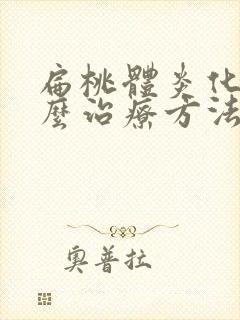 扁桃體炎化
麼治療方法
奧普拉